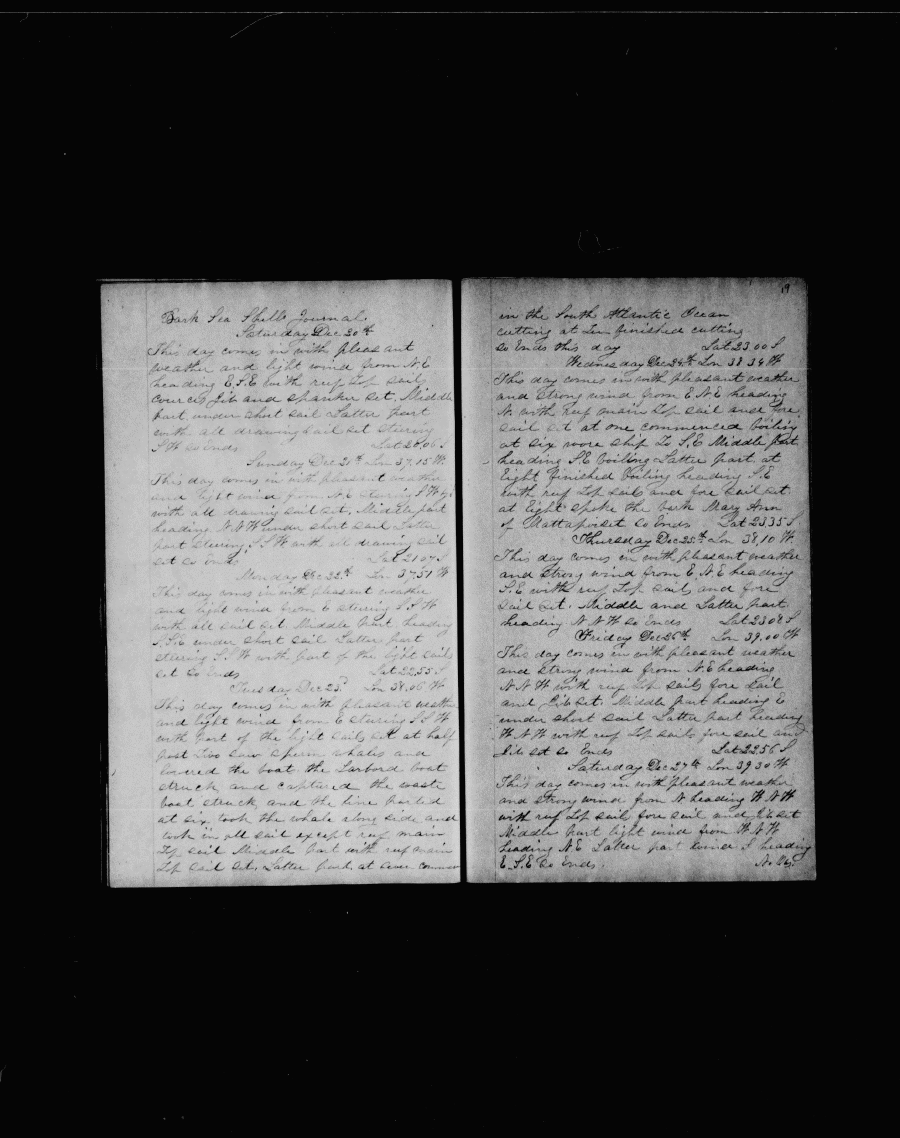 Bark Sea Shells Journal
Saturday Dec 20th
This day comes in with pleasant
weather and light wind from N.E
heading E.S.E with reef Top sails
courses Jib and spanker set. Middle
part under short sail Latter part
with all drawing sail set steering
S W so Ends Lat 20.06 S
Sunday Dec 21st Lon 37.15 W.
This day comes in with pleasant weather
and light wind from N.E steering S W
with all drawing sail set. Middle part
heading N.N.W under short sail Latter
part steering S.S.W with all drawing sail
set so Ends Lat 21 07 S
Monday Dec 22th Lon 37.51 W
This day comes in with pleasant weather
and light wind from E steering S.S.W
with all sail set Middle Part heading
S.S.E under short sail Latter part
steering S.S.W with part of the light sails
set so Ends Lat 22,55 S
Tuesday Dec 23 Lon 38.06 W
This day comes in with pleasant weather
and light wind from E steering S.S.W
with part of the light sails set at half
past Two saw sperm whales and
lowered the boat. the Larbord boat
struck and captured the waste
boat struck and the line parted
at six took the whale along side and
took in all sail except reef main
Top sail Middle Part with reef main
Top sail set. Latter part at
19
in the South Atlantic Ocean
cutting at Ten finished cutting
so Ends this day Lat 23.00 S
Wednesday Dec 24th Lon 38 34 W
This day comes in with pleasant weather
and strong wind from E.N.E heading
N. with Reef main Top sail and fore
sail set at one commenced boiling
at six wore ship To S.E Middle Part
heading S.E boiling Latter part at
Eight finished boiling heading S.E
with reef Top sails and fore sail set
at Eight spoke the bark Mary Ann
of Mattapoiset so Ends Lat 23.35 S
Thursday Dec 25th Lon 38,10 W.
This day comes in with pleasant weather
and strong wind from E.N.E heading
S.E with reef Top sails and fore
sail set. Middle and Latter part
heading N.N.W so Ends Lat 23.08 S
Friday Dec 26th Lon 39.00 W
This day comes in with pleasant weather
and strong wind from N.E heading
N.N.W with reef Top sails fore sail
and Jib set. Middle part heading E
under short sail Latter part heading
W.N.W with reef Top sails fore sail and
Jib set so Ends Lat 22.56 S
Saturday Dec 27th Lon 39 30 W
This day comes in with pleasant weather
and strong wind from N heading W.N.W
with reef Top sails fore sail and Jib set
Middle part light wind from W.N.W
heading N.E Latter part wind S heading
E.S.E So Ends. N. Ob.